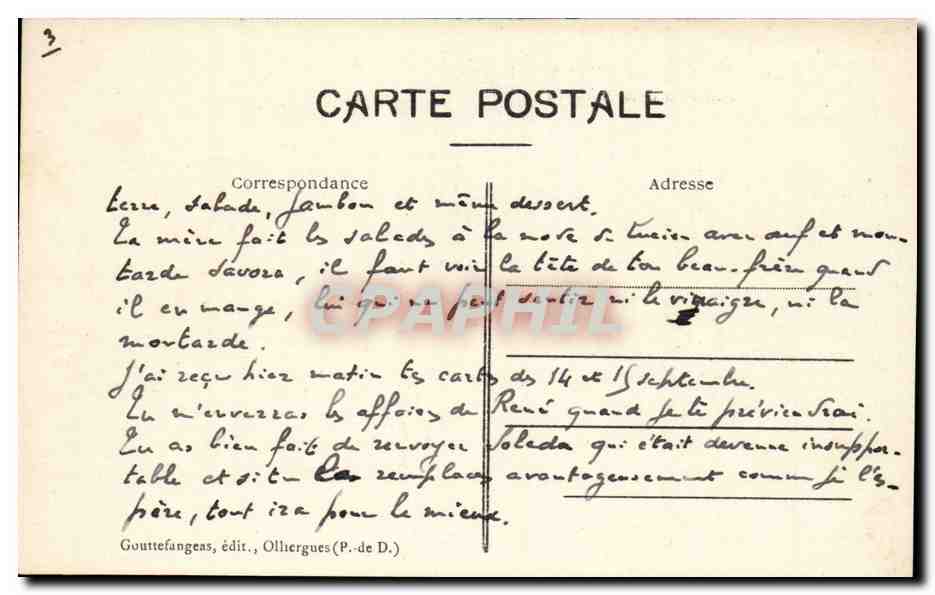 3
CARTE POSTALE
Correspondance
Adresse
terre, salade, jambon et même dessert.
La mère fait les salades à la mode de Lucien avec œuf et mou-
tarde savora, il faut voir la tête de ton beau-frère quand
il en mange, lui qui ne peut sentir ni le vinaigre, ni la
moutarde.
J'ai reçu hier matin tes cartes des 14 et 15 septembre.
Tu m'enverras les affaires de René quand je te préviendrai.
Tu as bien fait de renvoyer Soleda qui était devenue insuppor-
table et si tu la remplaces avantageusement comme je l'es-
père, tout ira pour le mieux.
Gouttefangeas, édit., Olliergues (P.-de D.)
CPAPHIL